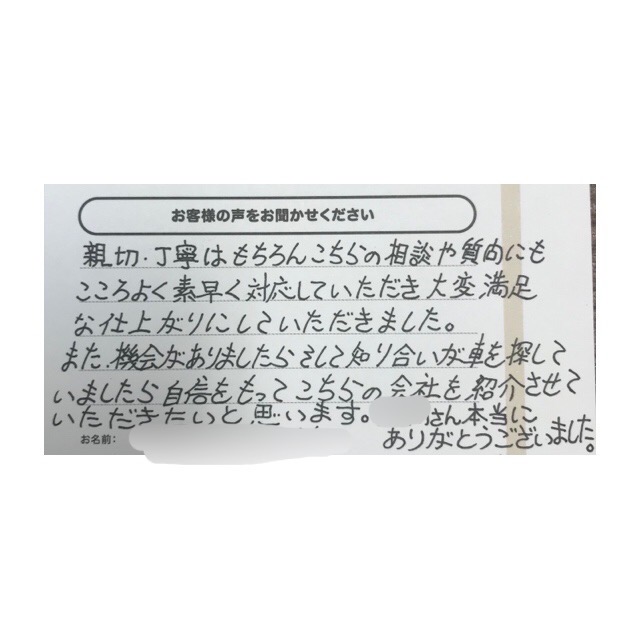 お客様の声をお聞かせください
親切・丁寧はもちろんこちらの相談や質向にも
こころよく素早く対応していただき大変満足
な仕上がりにしていただきました。
また、機会がありましたらそして知り合いが車を探して
いましたら自信をもってこちらの会社を紹介させて
いただきたいと思います。 さん本当に
ありがとうございました。
お名前: